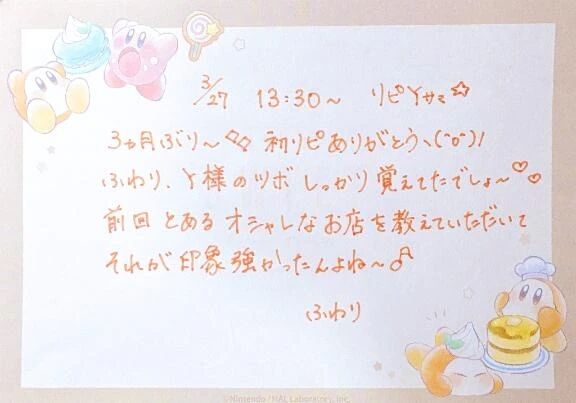 3/27 13:30~ リピYサマ☆
3ヵ月ぶり~◇◇ 初リピありがとうヽ(^o^)ﾉ
ふわり、Y様のツボしっかり覚えてたでしょ~♡♡
前回とあるオシャレなお店を教えていただいて
それが印象強かったんよね~♂
ふわり
©Nintendo / HAL Laboratory, Inc.